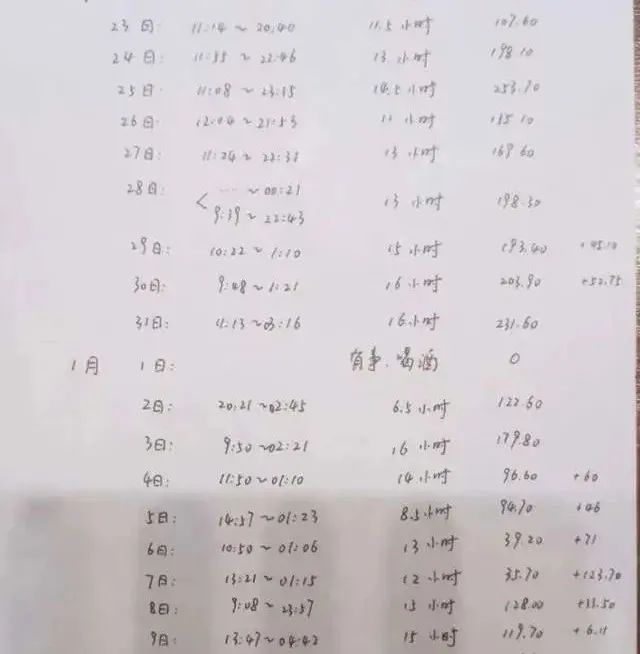 23日: 11:14 ~ 20:40 11.5小时 107.60
24日: 11:55 ~ 22:46 13小时 198.10
25日: 11:08 ~ 23:15 14.5小时 253.70
26日: 12:04 ~ 21:53 11小时 115.10
27日: 11:24 ~ 22:31 13小时 169.60
28日: < ... ~ 00:21
9:39 ~ 22:43 13小时 198.30
29日: 10:22 ~ 1:10 15小时 193.40 +45.10
30日: 9:48 ~ 1:21 16小时 203.90 +52.75
31日: 11:13 ~ 03:16 16小时 231.60
1月 1日: 有事.喝酒 0
2日: 20:21 ~ 02:45 6.5小时 122.60
3日: 9:50 ~ 02:21 16小时 179.80
4日: 11:50 ~ 01:10 14小时 96.60 +60
5日: 14:57 ~ 01:23 8.5小时 94.70 +46
6日: 10:50 ~ 01:06 13小时 39.20 +71
7日: 13:21 ~ 01:15 12小时 35.70 +123.70
8日: 9:08 ~ 23:57 15小时 128.00 +11.50
9日: 13:47 ~ 04:42 15小时 119.70